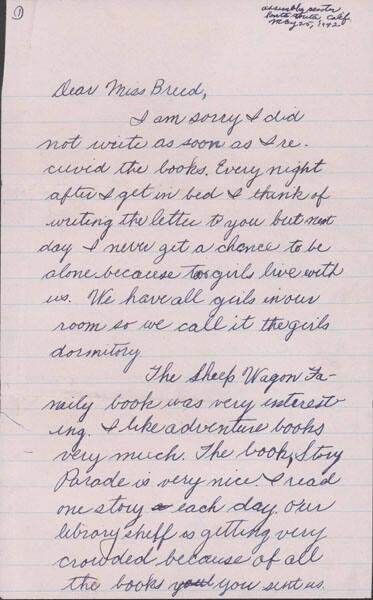 ①
assembly center
Santa Anita, Calif.
May 25, 1942
Dear Miss Breed,
I am sorry I did
not write as soon as I re-
cuvid the books. Every night
after I get in bed I think of
writing the letter to you but next
day I never get a chance to be
alone because two girls live with
us. We have all girls in our
room so we call it the girls
dormitory.
The Sheep Wagon Fa-
maily book was very interest-
ing. I like adventure books
very much. The book, Story
Parade is very nice. I read
one story a each day. Our
library shelf is getting very
crowded because of all
the books you you sent us.